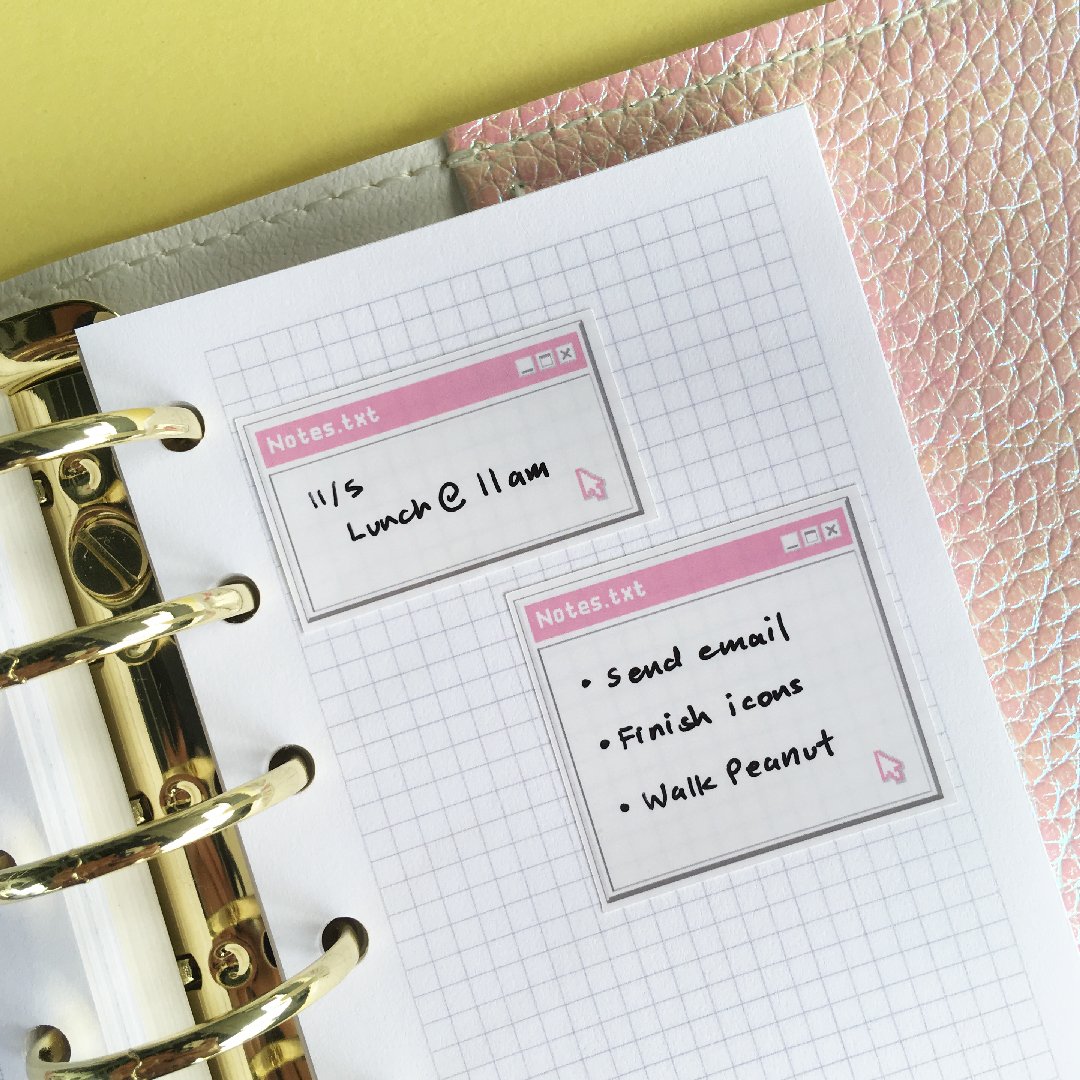 Notes.txt
11/5
Lunch @ 11 am
Notes.txt
• Send email
• Finish icons
• Walk Peanut